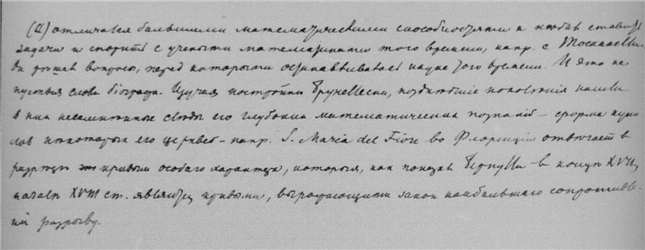 (Ш) отличался большими математическими способностями и любил ставить
задачи и спорить с учеными математиками того времени, напр. с Тосканелли.
Он решал вопросы, перед которыми останавливалась наука того времени. И это не
пустые слова биографа. Изучая постройки Брунеллески, позднейшие поколения нашли
в них несомненные следы его глубоких математических познаний – форма купо
лов некоторых его церквей – напр. S. Maria del Fiore во Флоренции отвечает в
разрезе кривым особого характера, которые, как показал Бернулли в конце XVII,
начале XVIII ст. являются кривыми, выражающими закон наибольшего сопротивле
ния разрыву.